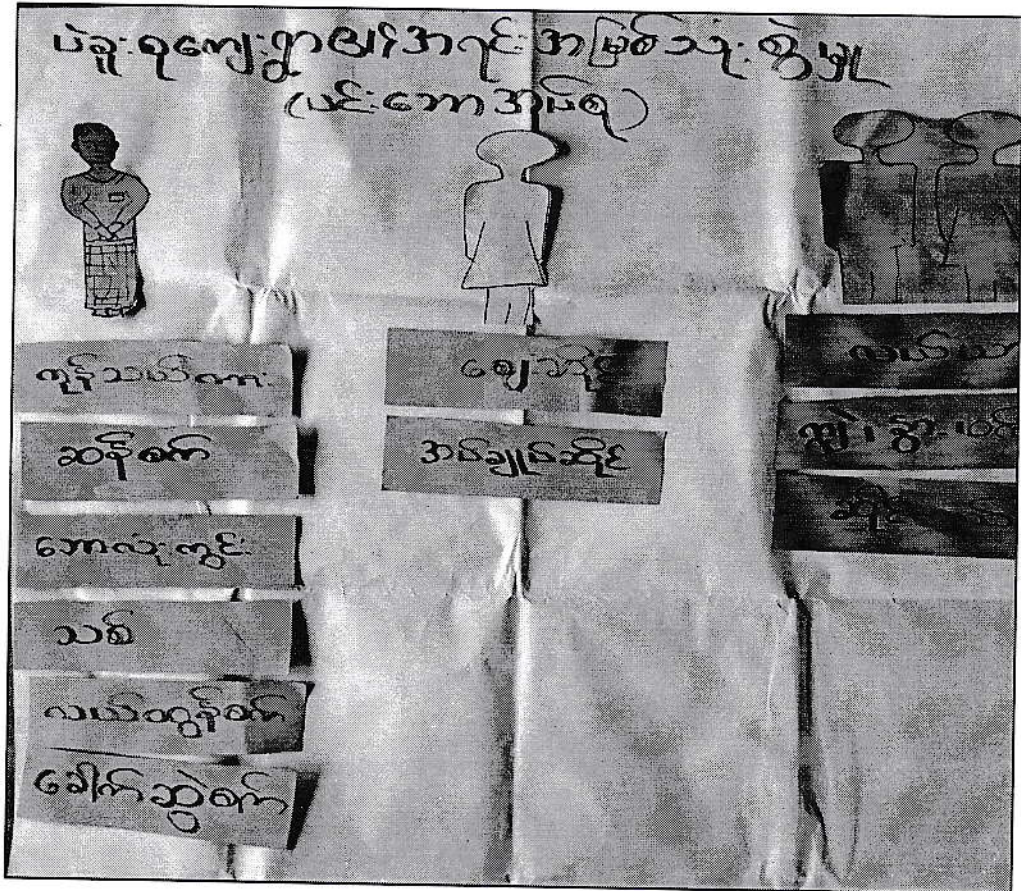 ပဲခူးစုကျေးရွာ၏အရင်းအမြစ်သုံးစွဲမှု
(ပင်းဘောအုပ်စု)
ကုန်သယ်ကား
ဆန်စက်
ဘောလုံးကွင်း
သစ်
လယ်ထွန်စက်
ခေါက်ဆွဲစက်
ဈေးဆိုင်
အပ်ချုပ်ဆိုင်
လယ်ယာ
ကျွဲ၊ နွား၊
ဆိုင်